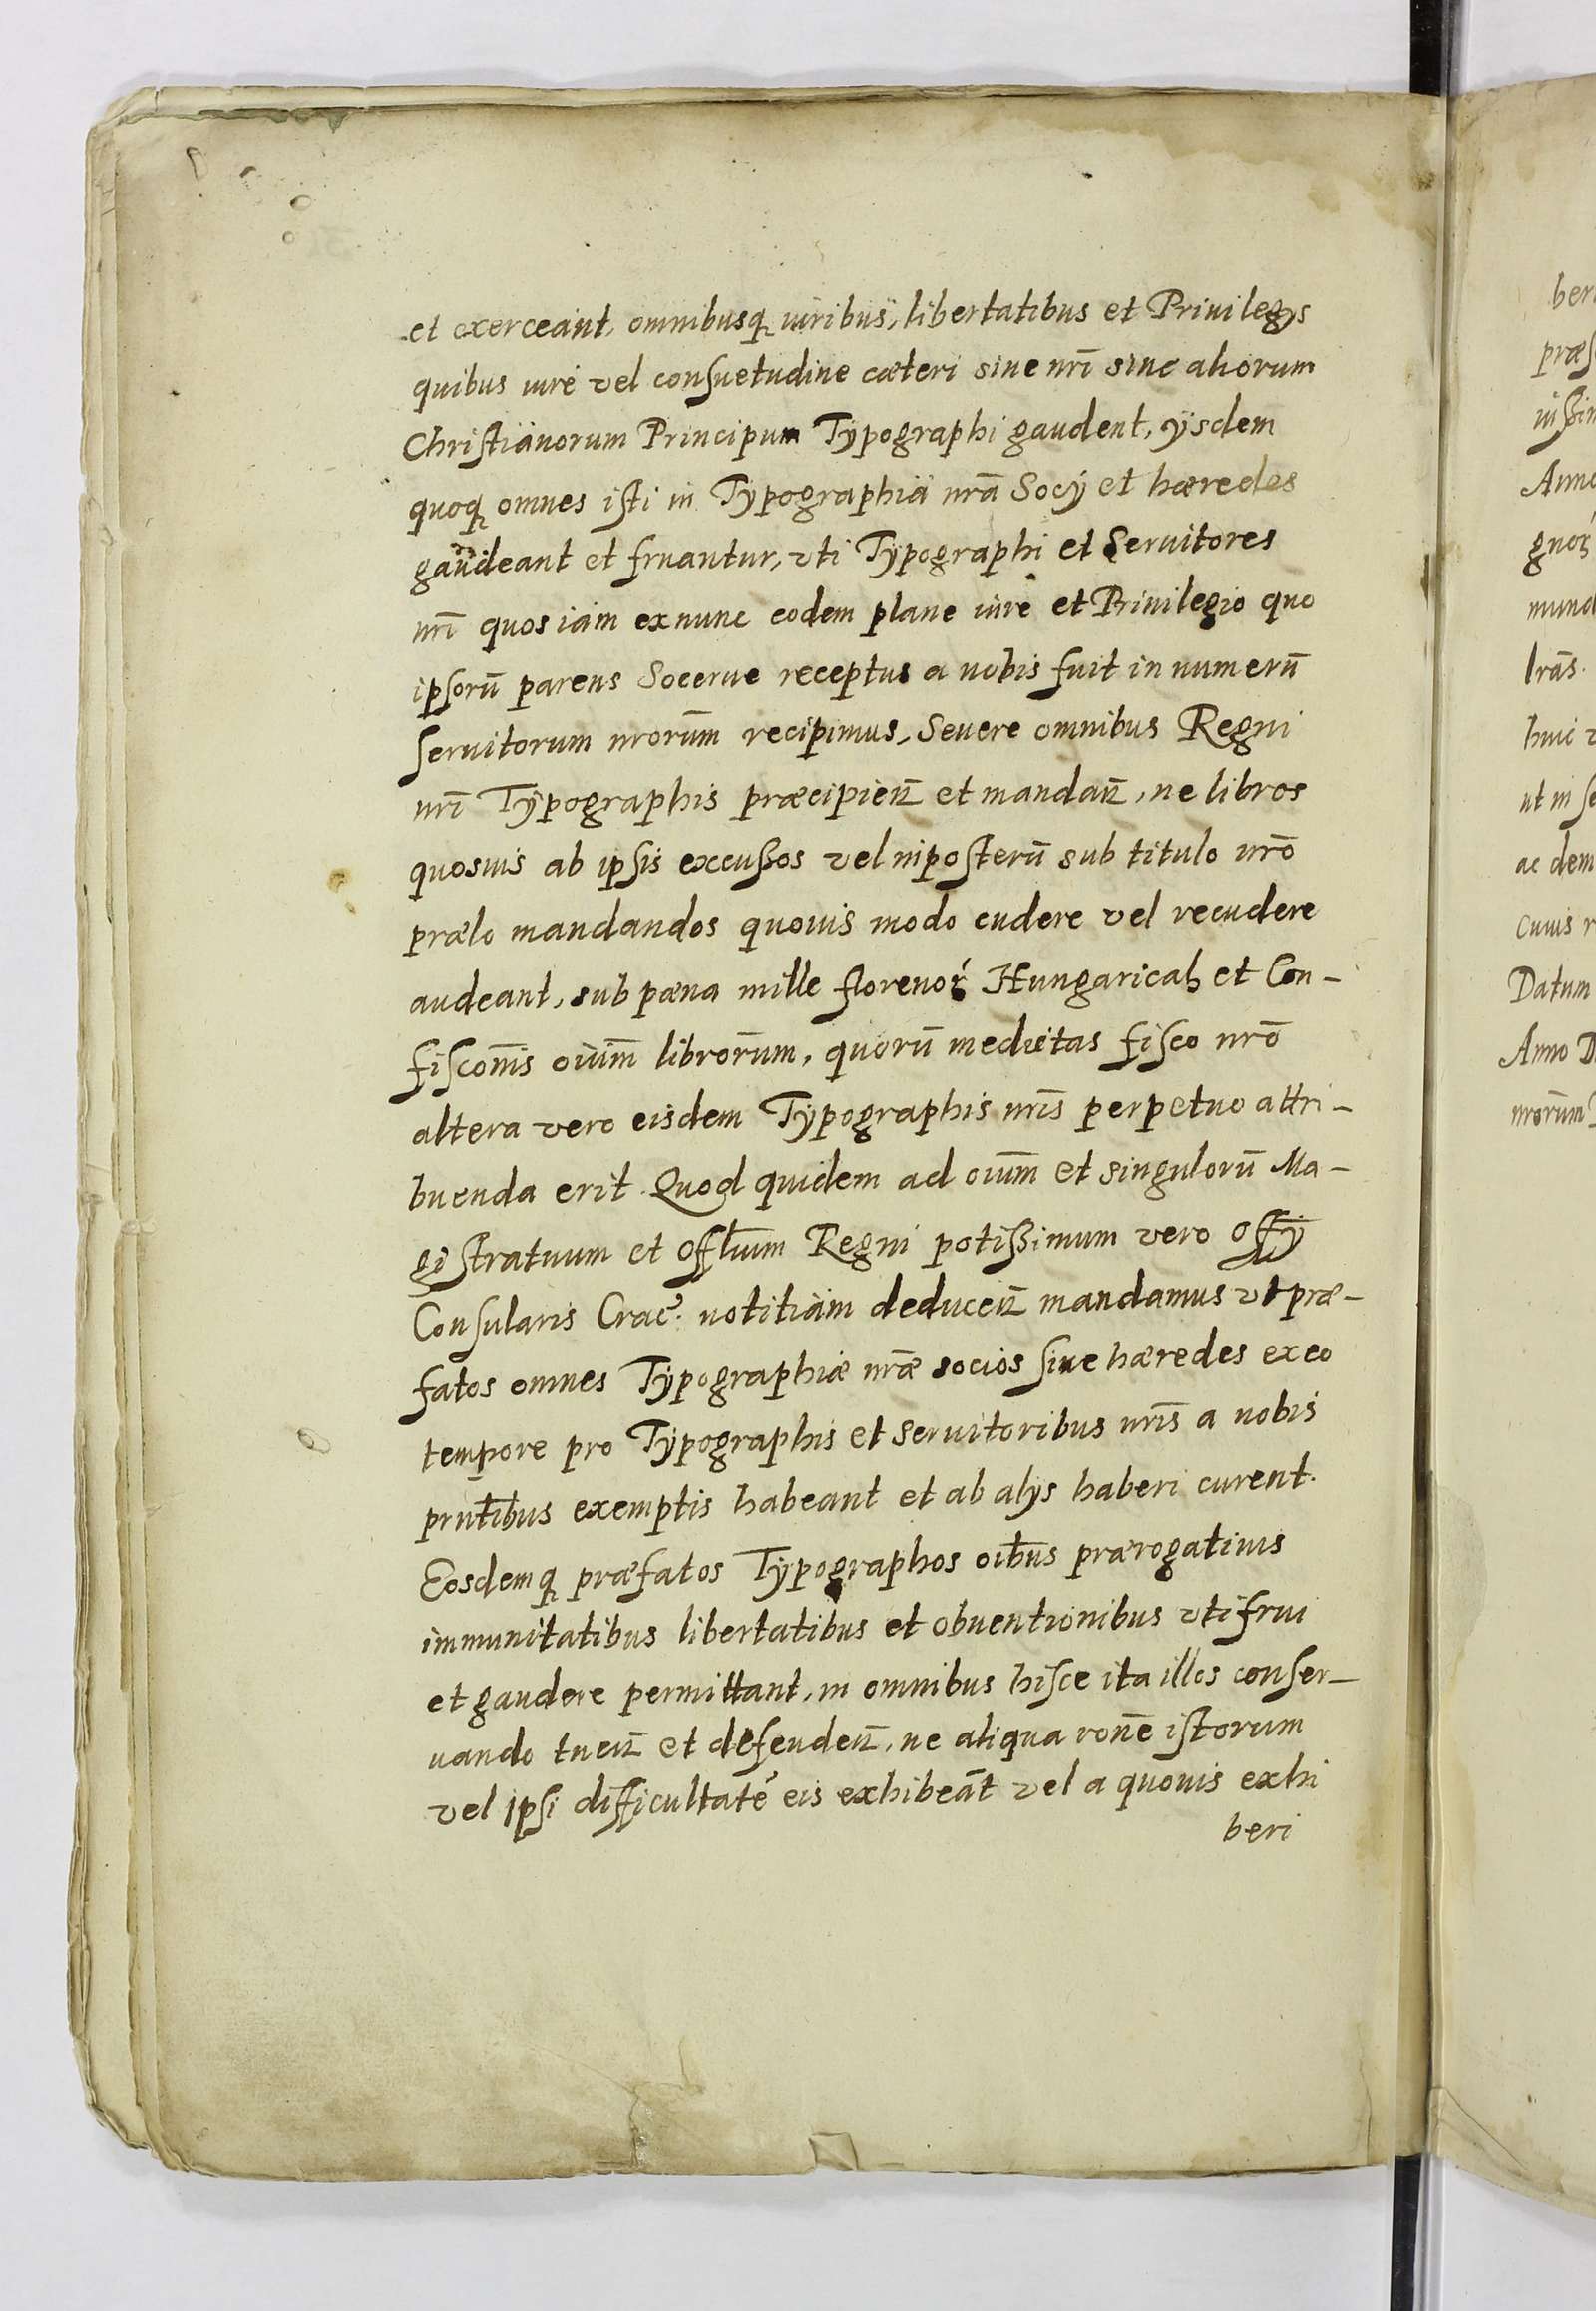 et exerceant, omnibusq́ꝫ iuribus, libertatibus et Priuilegÿs
quibus iure vel consuetudine cæteri siue nr̄i siue aliorum
Christianorum Principum Typographi gaudent, ÿsdem
quoqꝫ omnes isti in Typographia nrā Socÿ et hæredes
gaudeant et fruantur, vti Typographi et Seruitores
nr̄i quos iam ex nunc eodem plane iure et Priuilegio quo
ipsorū parens Socerue receptus a nobis fuit in numerū
seruitorum nrorūm recipimus, Seuere omnibus Regni
nr̄i Typographis præcipien̄ et mandan̄, ne libros
quosuis ab ipsis excußos vel inposterū sub titulo nrō
prælo mandandos quouis modo cudere vel recudere
audeant, sub pœna mille florenoꝝ Hungaricał et Con-
fiscon̄is oiūm librorūm, quorū medietas fisco nrō
altera vero eisdem Typographis nrīs perpetuo attri-
buenda erit. Quod quidem ad oiūm et singulorū Ma-
gistratuum et Offłium Regni potißimum vero Offÿ
Consularis Crac̄. notitiam deducen̄ mandamus vt præ-
fatos omnes Typographiæ nrǣ socios siue hæredes ex eo
tempore pro Typographis et Seruitoribus nrīs a nobis
pn̄tibus exemptis habeant et ab alÿs haberi curent.
Eosdemqꝫ præfatos Typographos oib̄us prærogatiuis
immunitatibus libertatibus et obuentionibus vti frui
et gaudere permittant, in omnibus hisce ita illos conser-
uando tuen̄ et defenden̄, ne aliqua ron̄e istorum
vel ipsi difficultatē eis exhibeāt vel a quouis exhi
beri